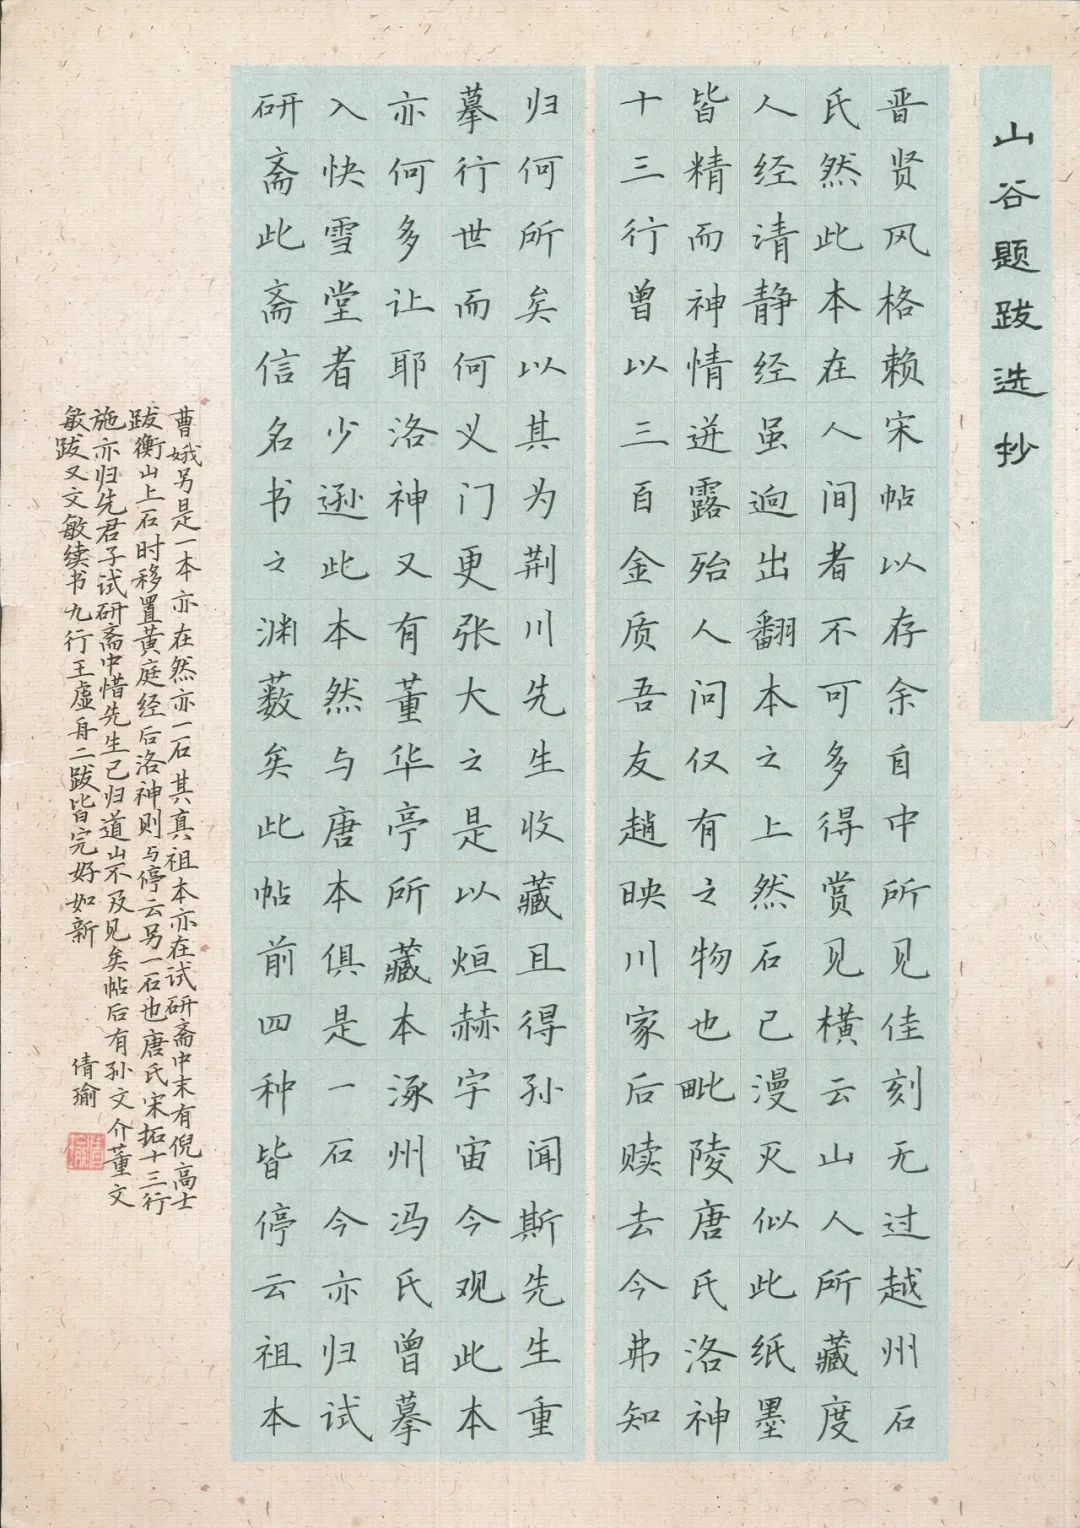 山谷题跋选抄
晋贤风格赖宋帖以存余自中所见佳刻无过越州石
氏然此本在人间者不可多得赏见横云山人所藏度
人经清静经虽逈出翻本之上然石已漫灭似此纸墨
皆精而神情迸露殆人问仅有之物也毗陵唐氏洛神
十三行曾以三百金质吾友趙映川家后赎去今弗知
归何所矣以其为荆川先生收藏且得孙闻斯先生重
摹行世而何义门更张大之是以烜赫宇宙今观此本
亦何多让耶洛神又有董华亭所藏本涿州冯氏曾摹
入快雪堂者少逊此本然与唐本俱是一石今亦归试
研斋此斋信名书之渊薮矣此帖前四种皆停云祖本
曹娥另是一本亦在然亦一石其真祖本亦在试研斋中末有倪高士
跋衡山上石时移置黄庭经后洛神则与停云另一石也唐氏宋拓十三行
施亦归先君子试研斋中惜先生已归道山不及见矣帖后有孙文介董文
敏跋又文敏续书九行王虚舟二跋皆完好如新
倩瑜